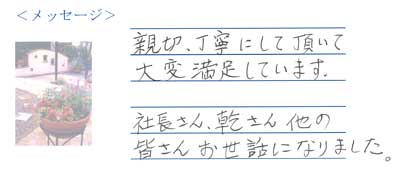 ＜メッセージ＞
親切、丁寧にして頂いて
大変満足しています.
社長さん、乾さん他の
皆さんお世話になりました。